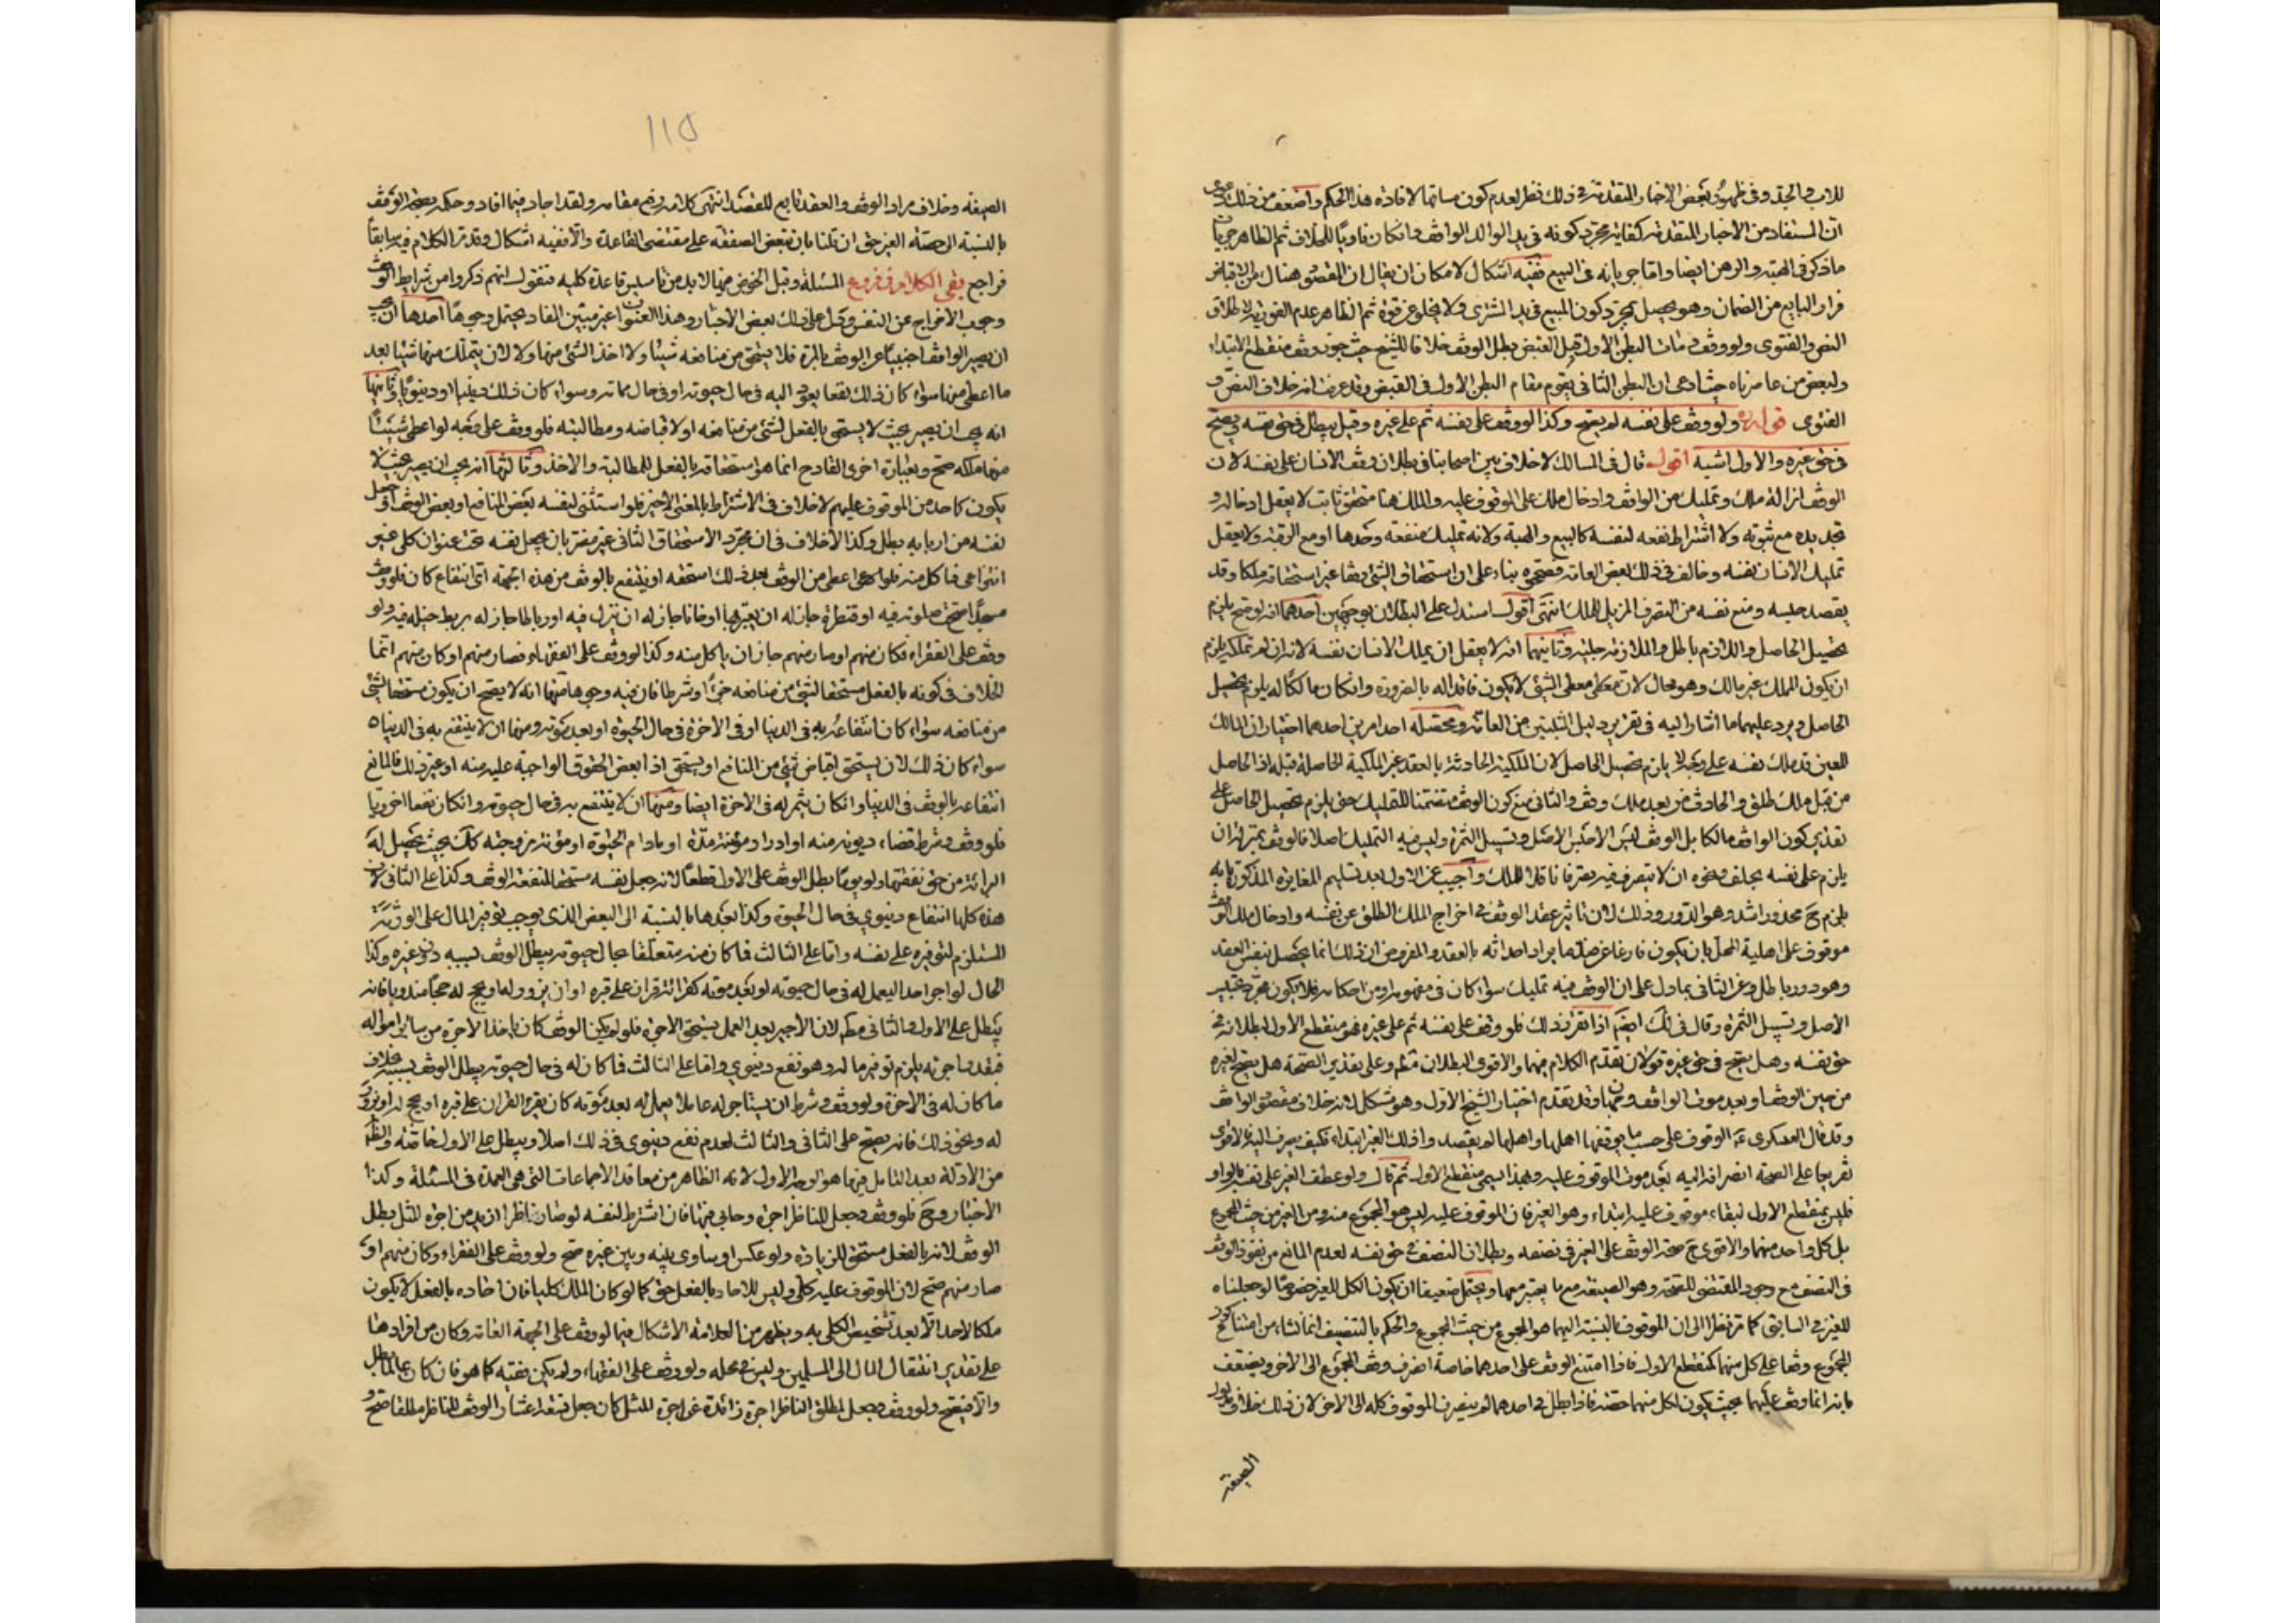 للاب والجد وفى ظهور بعض الاخبار المتقدمة فى ذلك نظر لعدم كون مساقها لافادة هذا الحكم واضعف من ذلك دعوى
ان المستفاد من الاخبار المتقدمة كفاية مجرد كونه فى يد الوالد الواقف وان كان ناويا للخلاف ثم الظاهر جريان
ما ذكر فى الهبة والرهن ايضا واما جريانه فى البيع ففيه اشكال لامكان ان يقال ان المقصود هناك من الاقباض
فرار البايع من الضمان وهو يحصل بمجرد كون المبيع فى يد المشترى ولا يخلو عن قوة ثم الظاهر عدم الفورية لاطلاق
النص والفتوى ولو وقف فمات البطن الاول قبل القبض بطل الوقف خلافا للشيخ حيث جوز وقف منقطع الابتداء
ولبعض من عاصرناه حيث ادعى ان البطن الثانى يقوم مقام البطن الاول فى القبض وقد عرفت انه خلاف النص و
الفتوى قوله ره ولو وقف على نفسه لم يصح وكذا لو وقف على نفسه ثم على غيره وقيل يبطل فى حق نفسه ويصح
فى حق غيره والاول اشبه اقول قال فى المسالك لا خلاف بين اصحابنا فى بطلان وقف الانسان على نفسه لان
الوقف ازالة ملك وتمليك من الواقف وادخال ملك على الموقوف عليه والملك هنا متحقق ثابت لا يعقل ادخاله و
تجديده مع ثبوته ولا اشتراط نفعه لنفسه كالبيع والهبة ولانه تمليك منفعة وحدها او مع الرقبة ولا يعقل
تمليك الانسان نفسه وخالف فى ذلك بعض العامة فصححه بناء على ان استحقاق الشئ وقفا غير استحقاقه ملكا وقد
يقصد حبسه ومنع نفسه من التصرف المزيل للملك انتهى اقول استدل على البطلان بوجهين احدهما انه لو صح يلزم
تحصيل الحاصل واللازم باطل والملازمة جلية وثانيهما انه لا يعقل ان يملك الانسان نفسه لانه ان لم تملكه يلزم
ان يكون المملك غير مالك وهو محال لان معطى الشئ لا يكون فاقدا له بالضرورة وان كان مالكا له يلزم تحصيل
الحاصل ويرد عليهما ما اشار اليه فى تقرير دليل المثبتين من العامة ومحصله احد امرين احدهما اختيار ان المالك
للعين قد ملك نفسه على وجه لا يلزم تحصيل الحاصل لان الملكية الحادثة بالعقد غير الملكية الحاصلة قبله اذ الحاصل
من قبل ملك طلق والحادث من بعد ملك وقف والثانى منع كون الوقف متضمنا للتمليك حتى يلزم تحصيل الحاصل على
تقدير كون الواقف مالكا بل الوقف ليس الا حبس الاصل وتسبيل الثمرة وليس فيه التمليك اصلا فالوقف بمنزلة ان
يلزم على نفسه بحلف ونحوه ان لا يتصرف فيه تصرفا ناقلا للملك واجيب عن الاول بعد تسليم المغايرة المذكورة بانه
يلزم ح محذور اشد وهو الدور وذلك لان تاثير عقد الوقف فى اخراج الملك الطلق عن نفسه وادخال ملك الوقف
موقوف على اهلية المحل بان يكون فارغا عن مثل ما يراد احداثه بالعقد والمفروض ان ذلك انما يحصل بنفس العقد
وهو دور باطل وعن الثانى بما دل على ان الوقف فيه تمليك سواء كان فى مفهومه او من احكامه فلا يكون مجرد تحبيس
الاصل وتسبيل الثمرة وقال فى لك ايضا اذا تقرر ذلك فلو وقف على نفسه ثم على غيره فهو منقطع الاول لبطلانه فى
حق نفسه وهل يصح فى حق غيره قولان تقدم الكلام فيهما والاقوى البطلان مطم وعلى تقدير الصحة هل يصح لغيره
من حين الوقف او بعد موت الواقف وجهان وقد تقدم اختيار الشيخ الاول وهو مشكل لانه خلاف مقصود الواقف
وقد قال العسكرى ع الوقوف على حسب ما يوقفها اهلها واهلها لم يقصدوا ذلك الغير ابتداء فكيف يصرف اليه فالاقوى
تفريعا على الصحة انصرافه اليه بعد موت الموقوف عليه وبهذا يسمى منقطع الاول ثم قال ولو عطف الغير على نفسه بالواو
فليس بمنقطع الاول لبقاء موقوف عليه ابتداء وهو الغير فان الموقوف عليه ليس هو المجموع منه ومن الغير من حيث المجموع
بل كل واحد منهما والاقوى ح صحة الوقف على الغير فى نصفه وبطلان النصف فى حق نفسه لعدم المانع من نفوذ الوقف
فى النصف مع وجود المقتضى للصحة وهو الصيغة مع ما يعتبر معها ويحتمل ضعيفا ان يكون الكل للغير خصوصا لو جعلناه
للغير فى السابق كما مر نظرا الى ان الموقوف بالنسبة اليهما هو المجموع من حيث المجموع والحكم بالتنصيف انما نشاء من امتناع كون
المجموع وقفا على كل منهما كمنقطع الاول فاذا امتنع الوقف على احدهما خاصة انصرف وقف المجموع الى الاخر ويضعف
بانه انما وقف عليهما بحيث يكون لكل منهما حصة فاذا بطل فى احدهما لم ينصرف الموقوف كله الى الاخر لان ذلك خلاف مدلول
الصيغة
١١٥
الصيغة وخلاف مراد الواقف والعقد تابع للقصد انتهى كلامه رفع مقامه ولقد اجاد فيما افاد وحكمه بصحة الوقف
بالنسبة الى حصة الغير حتى ان قلنا بان تبعض الصفقة على مقتضى القاعدة والا ففيه اشكال وقد مر الكلام فيه سابقا
فراجع بقى الكلام فى فروع المسئلة وقبل الخوض فيها لا بد من تاسيس قاعدة كلية فنقول انهم ذكروا من شرايط الوقف
وجوب الاخراج عن النفس ودل على ذلك بعض الاخبار وهذا العنوان غير مبين المفاد يحتمل وجوها احدها انه يجب
ان يصير الواقف اجنبيا عن الوقف بالمرة فلا يستحق من منافعه شيئا ولا اخذ الشئ منها ولا لان يتملك منها شيئا بعد
ما اعطى منها سواء كان ذلك نفعا يعود اليه فى حال حيوته او فى حال مماته وسواء كان ذلك دينيا او دنيويا وثانيها
انه يجب ان يصير بحيث لا يستحق بالفعل لشئ من منافعه او لاقباضه ومطالبته فلو وقف على وجه لو اعطى شيئا
منها ملكه صح وبعبارة اخرى القادح انما هو استحقاقه بالفعل للمطالبة والاخذ وثالثها انه يجب ان يصير بحيث لا
يكون كاحد من الموقوف عليهم لا خلاف فى الاشتراط بالمعنى الاخير فلو استثنى لنفسه بعض المنافع او بعض الوقف او جعل
نفسه من اربابه بطل وكذا لا خلاف فى ان مجرد الاستحقاق الثانى غير مضر بان يجعل نفسه تحت عنوان كلى غير
مسجدا استحق صلوته فيه او قنطرة جاز له ان يعبرها او خانا جاز له ان ينزل فيه او رباطا جاز له ربط خيله فيه ولو
وقف على الفقراء فكان منهم او صار منهم جاز ان ياكل منه وكذا لو وقف على الفقهاء فصار منهم او كان منهم انما
الخلاف فى كونه بالفعل مستحقا لشئ من منافعه جزءا او شرطا فان فيه وجوها منها انه لا يصح ان يكون مستحقا لشئ
من منافعه سواء كان انتفاعه به فى الدنيا او فى الاخرة فى حال الحيوة او بعد موته ومنها ان لا ينتفع به فى الدنيا
سواء كان ذلك لان يستحق اقباض شئ من المنافع او يستحق اداء بعض الحقوق الواجبة عليه منه او غير ذلك فالمانع
انتفاعه بالوقف فى الدنيا وان كان يثمر له فى الاخرة ايضا ومنها ان لا ينتفع به فى حال حيوته وان كان نفعا اخرويا
فلو وقف وشرط قضاء ديونه منه او ادرار مؤنته مدة او مادام الحيوة او مؤنة زوجته كك بحيث يحصل له
البرائة من حق نفقتها ولو يوما بطل الوقف على الاول قطعا لانه جعل نفسه مستحقا لمنفعة الوقف وكذا على الثانى لان
هذه كلها انتفاع دنيوى فى حال الحيوة وكذا بعدها بالنسبة الى البعض الذى يوجب توفير المال على الورثة
المستلزم لتوفيره على نفسه واما على الثالث فما كان منه متعلقا بحال حيوته يبطل الوقف بسببه دون غيره وكذا
الحال لو اجر احدا ليعمل له فى حال حيوته او بعد موته كقرائة قران على قبره او ان يزور له او يحج له حجا مندوبا فانه
يبطل على الاول والثانى مطم لان الاجير بعد العمل يستحق الاجرة فلو لم يكن الوقف كان ياخذ الاجرة من ساير امواله
فبقدر اجرته يلزم توفير ماله وهو نفع دنيوى واما على الثالث فما كان له فى حال حيوته يبطل الوقف بسببه بخلاف
ما كان له فى الاخرة ولو وقف وشرط ان يستاجر له عاملا يعمل له بعد موته كان يقرء القران على قبره او يحج له او يزور
له ونحو ذلك فانه يصح على الثانى والثالث لعدم نفع دنيوى فى ذلك اصلا ويبطل على الاول خاصة والظاهر
من الادلة بعد التامل فيها هو الوجه الاول لانه الظاهر من معاقد الاجماعات التى هى العمدة فى المسئلة وكذا
الاخبار وح فلو وقف وجعل للناظر اجرة وحابى فيها فان اشترط لنفسه لو صار ناظرا ازيد من اجرة المثل بطل
الوقف لانه بالفعل مستحق للزيادة ولو عكس او ساوى بينه وبين غيره صح ولو وقف على الفقراء وكان منهم او
صار منهم صح لان الموقوف عليه كلى وليس للاحاد بالفعل حق كما لو كان الملك كليا فان احاده بالفعل لا يكون
ملكا لاحد الا بعد تشخيص الكلى به ويظهر من العلامة الاشكال فيما لو وقف على الجهة العامة وكان من افرادها
على تقدير انتقال المال الى المسلمين وليس فى محله ولو وقف على الفقهاء ولم يكن فقيه كما هو فان كان عالما بطل
والا فيصح ولو وقف وجعل لمطلق الناظر اجرة زائدة عن اجرة المثل كان جعل تسعة اعشار الوقف للناظر مطلقا صح و